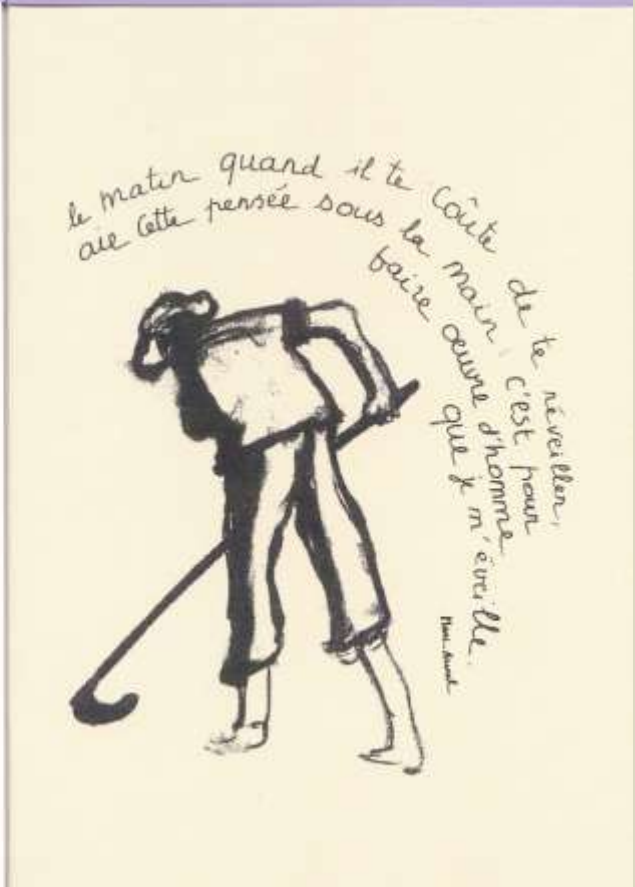 le matin quand il te coûte de te réveiller,
aie cette pensée sous la main, c'est pour
faire œuvre d'homme
que je m'éveille.
Marc Aurel